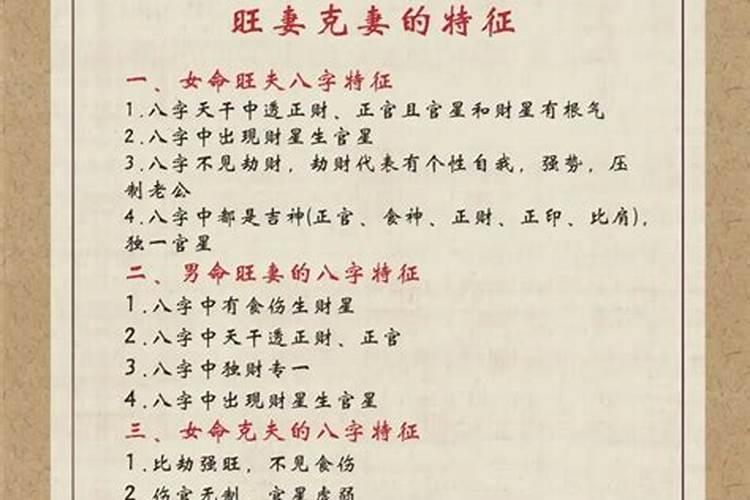 旺妻克妻的特征
一、女命旺夫八字特征
1.八字天干中透正财、正官且官星和财星有根气
2.八字中出现财星生官星
3.八字不见劫财，劫财代表有个性自我，强势，压
制老公
4.八字中都是吉神(正官、食神、正财、正印、比肩)，
独一官星
二、男命旺妻的八字特征
1.八字中有食伤生财星
2.八字中天干透正财、正官
3.八字中独财专一
4.八字中出现财星生官星
三、女命克夫的八字特征
1.比劫强旺，不见食伤
2.伤官无制，官星虚弱